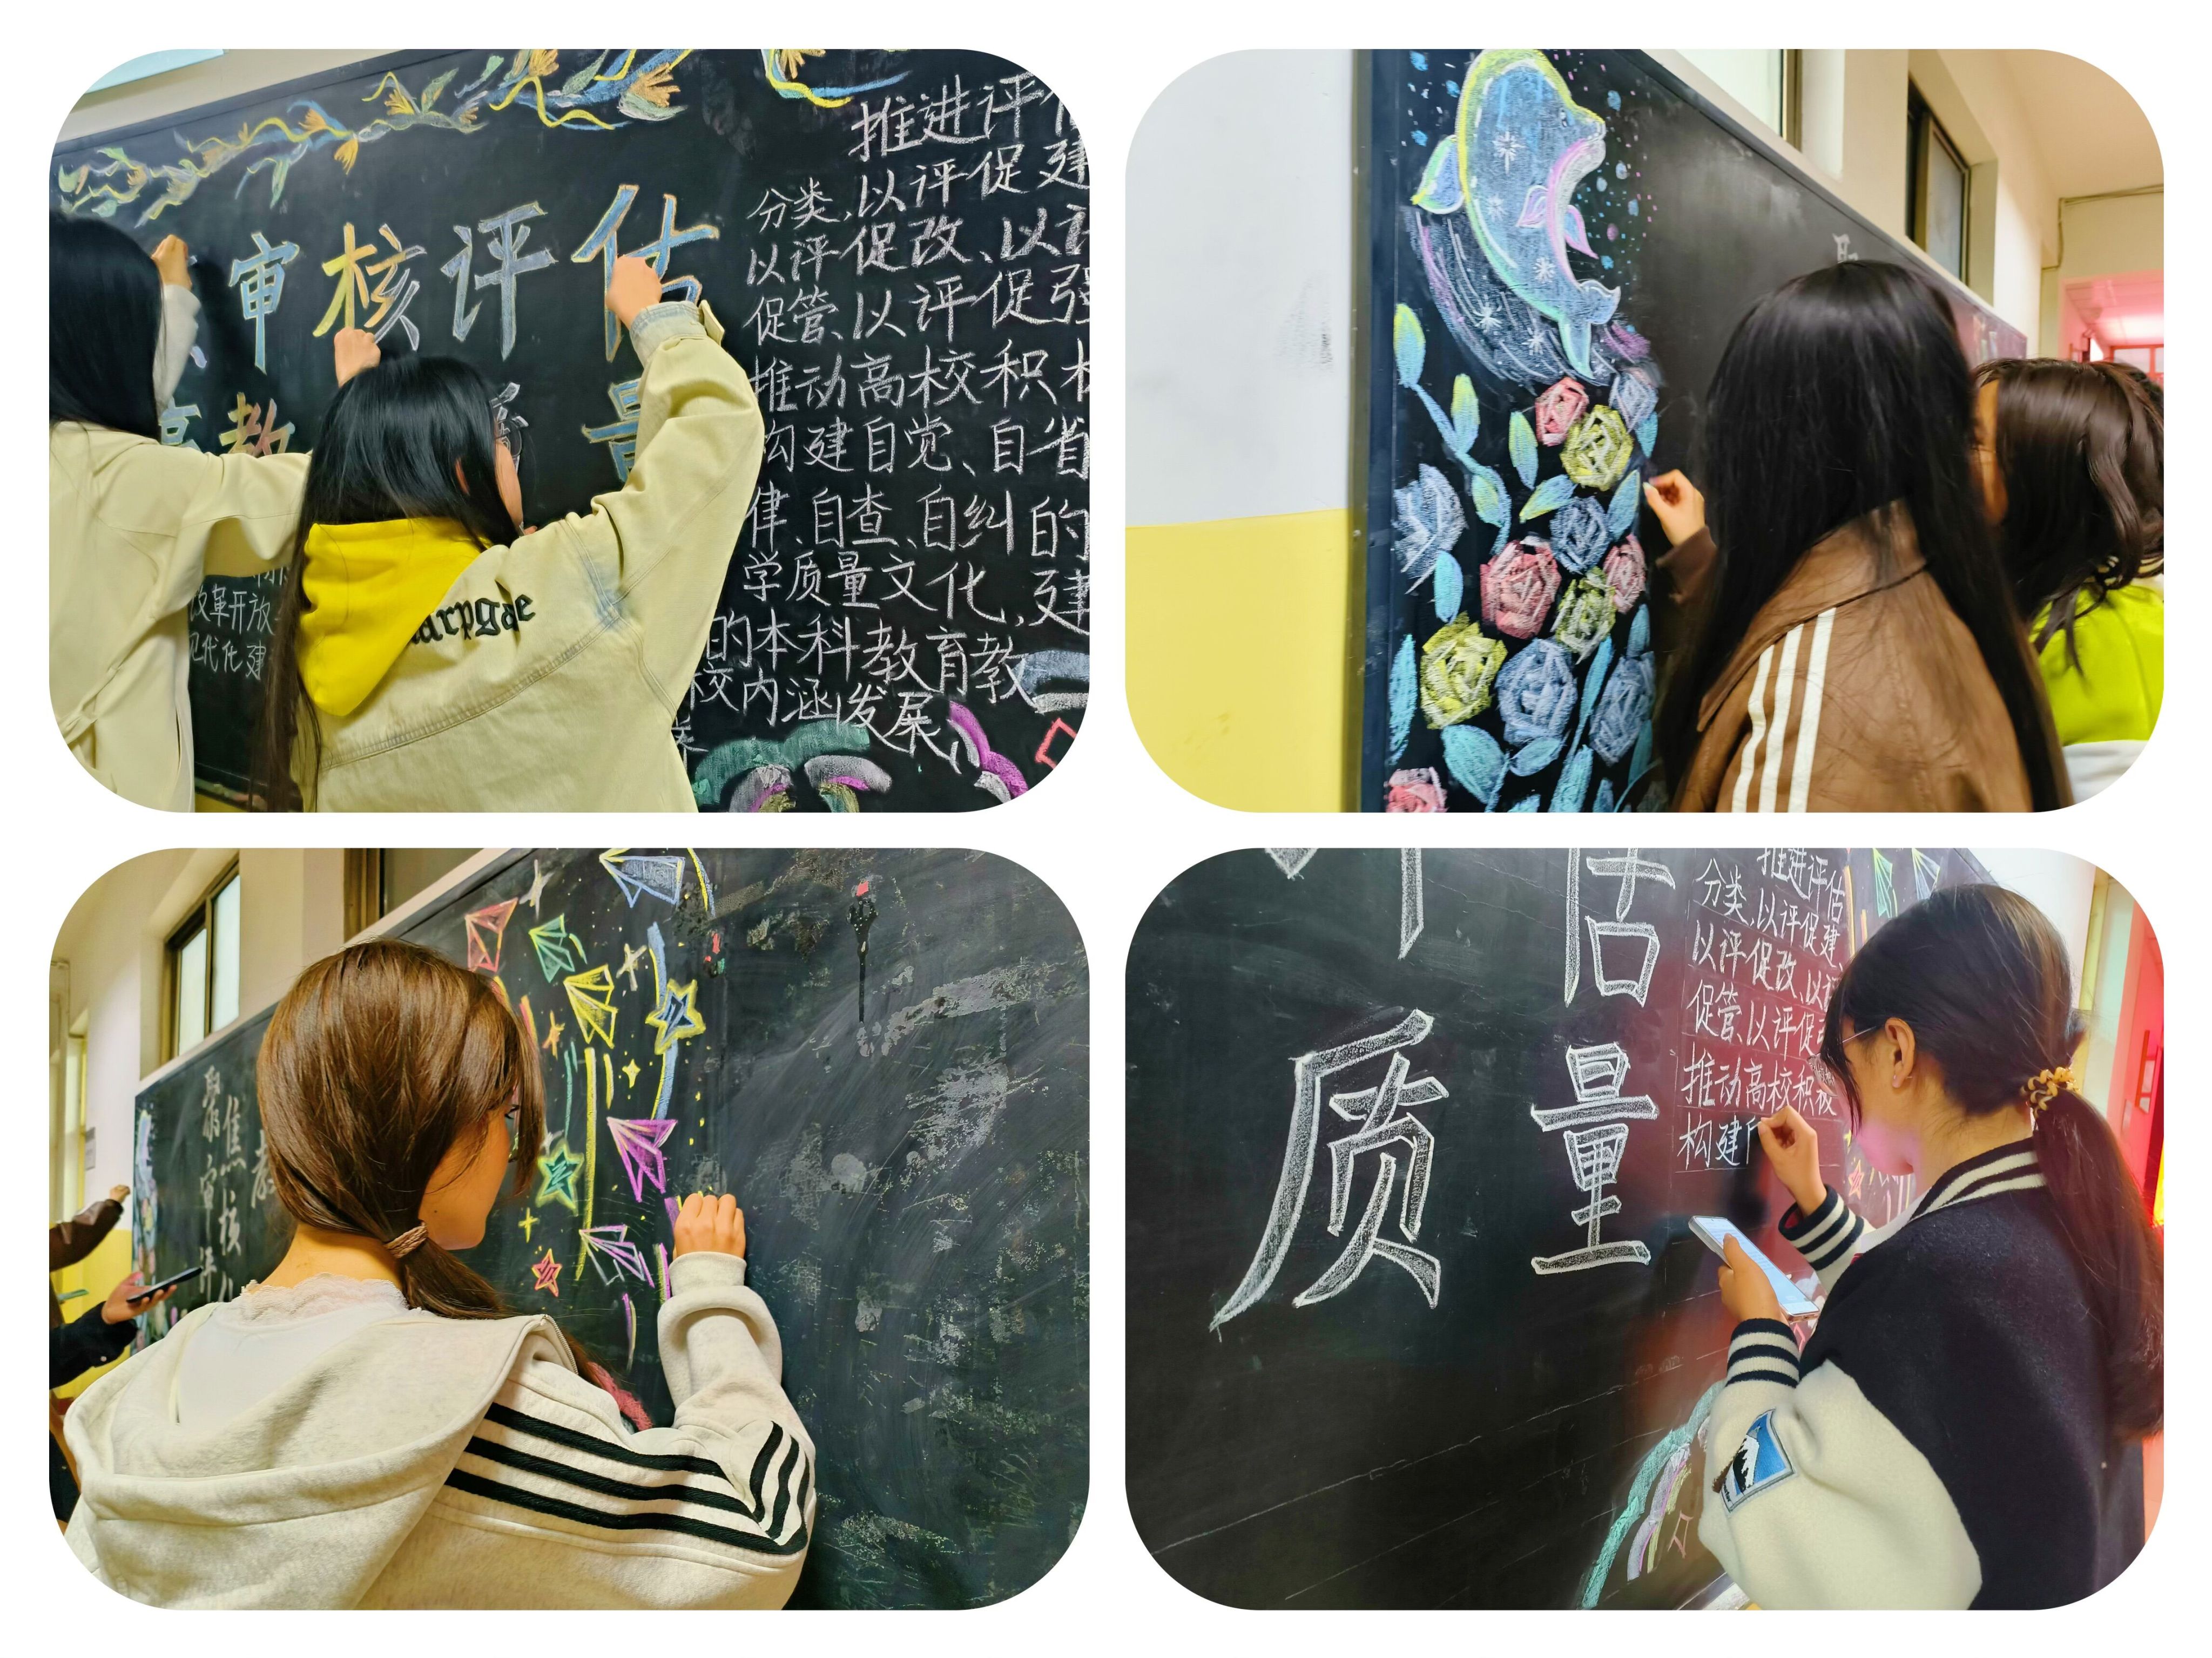 审核评估
高教
量
改革开放
现代化建
推进评估
分类、以评促建
以评促改、以评
促管、以评促强
推动高校积极
构建自觉、自省
律、自查、自纠的
学质量文化,建
的本科教育教
校内涵发展
arpgae
聚焦教
审核评
估
质量
推进评估
分类、以评促建、
以评促改、以评
促管、以评促
推动高校积极
构建